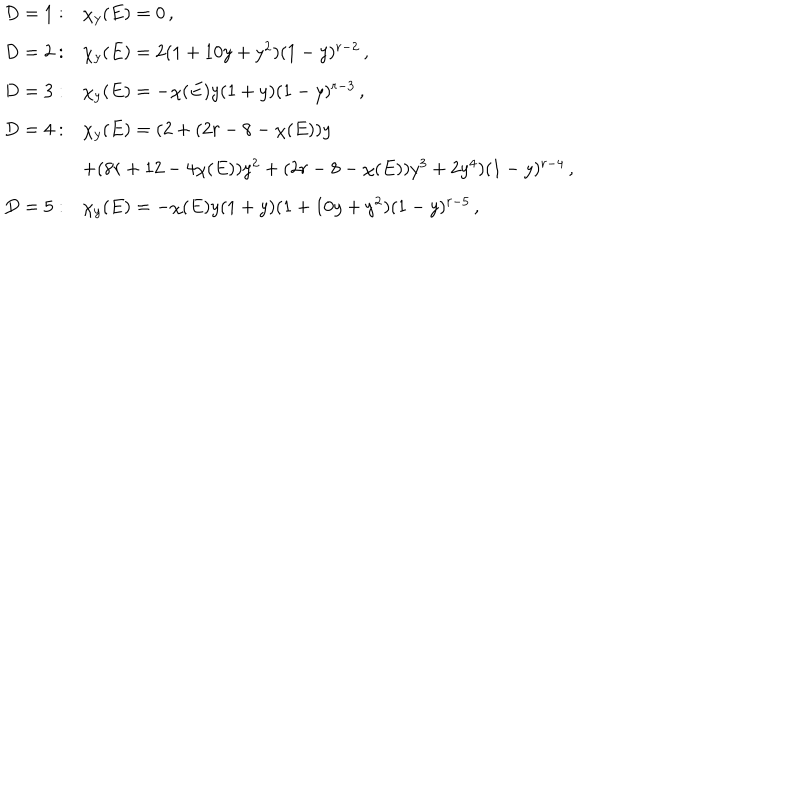 D = 1 : χ_y(E) = 0 ,
D = 2 : χ_y(E) = 2(1 + 10y + y²)(1 − y)^{r−2} ,
D = 3 : χ_y(E) = −χ(E)y(1 + y)(1 − y)^{r−3} ,
D = 4 : χ_y(E) = (2 + (2r − 8 − χ(E))y
+(8r + 12 − 4χ(E))y² + (2r − 8 − χ(E))y³ + 2y⁴)(1 − y)^{r−4} ,
D = 5 : χ_y(E) = −χ(E)y(1 + y)(1 + 10y + y²)(1 − y)^{r−5} ,